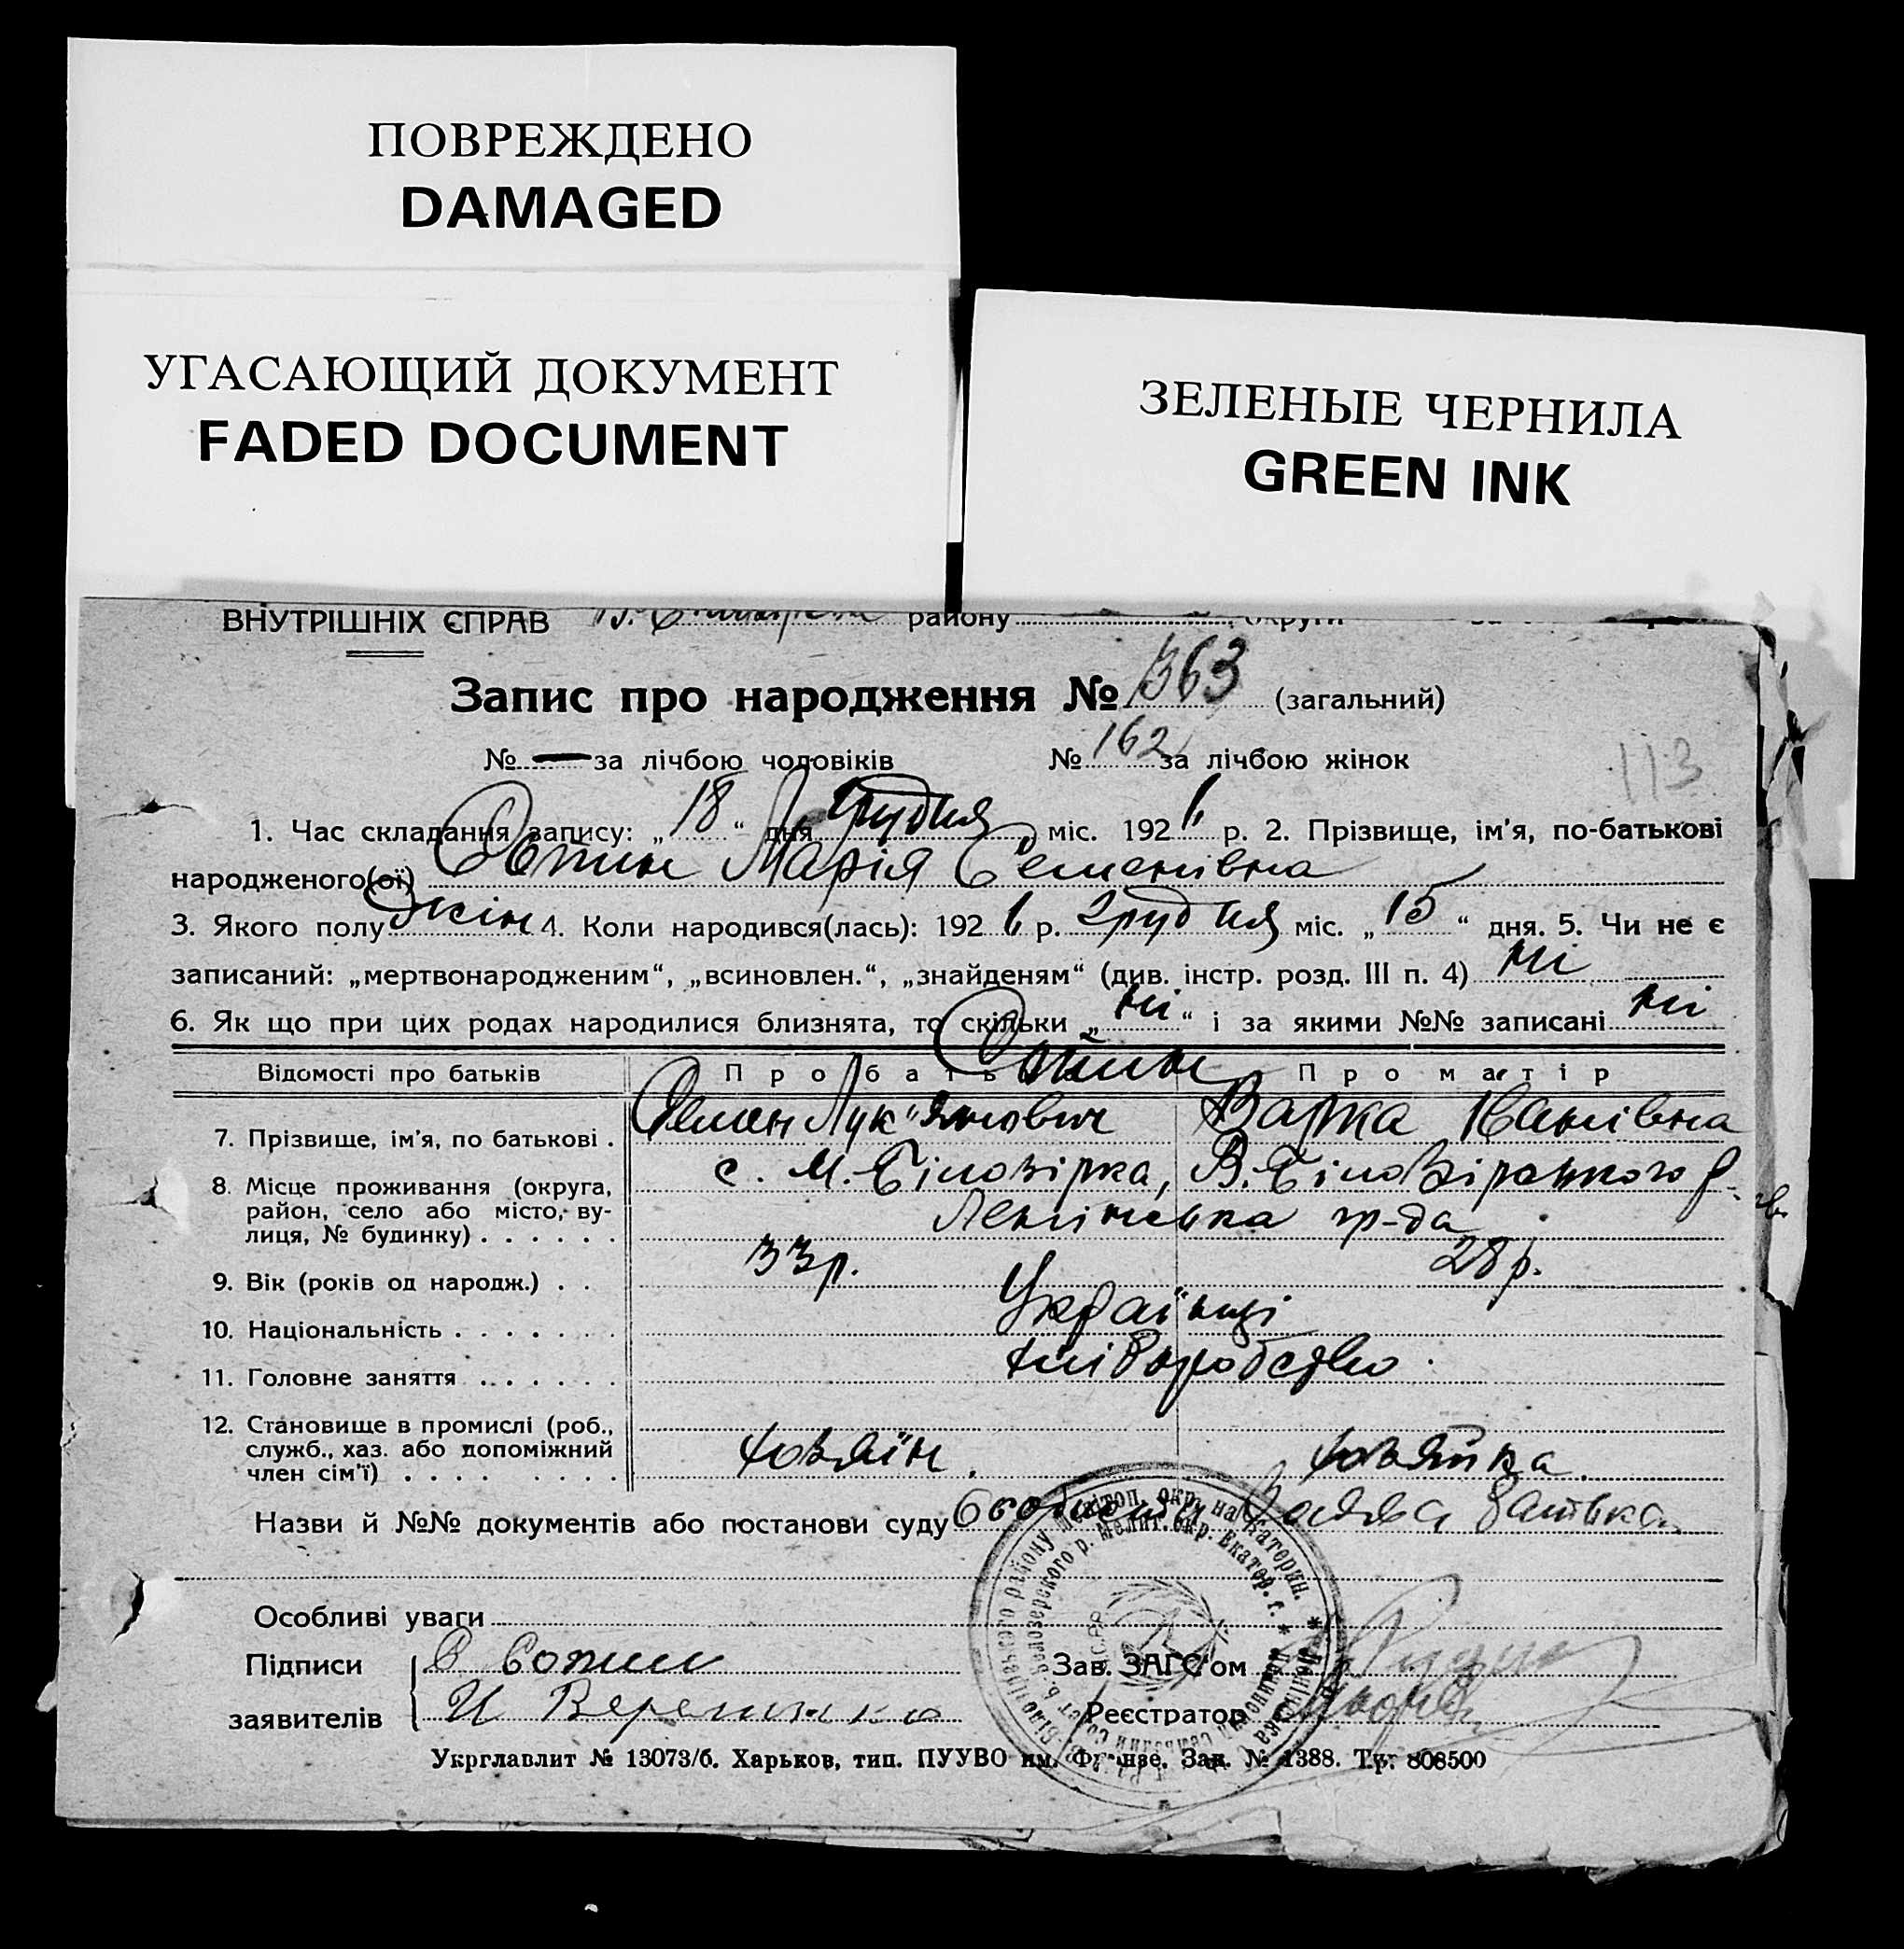 ПОВРЕЖДЕНО
DAMAGED
УГАСАЮЩИЙ ДОКУМЕНТ
FADED DOCUMENT
ЗЕЛЕНЫЕ ЧЕРНИЛА
GREEN INK
ВНУТРІШНІХ СПРАВ району округи
Запис про народження № 363 (загальний)
№ — за лічбою чоловіків № 162 за лічбою жінок
113
1. Час складання запису: „18“ дня Грудня міс. 1926 р. 2. Прізвище, ім’я, по-батькові
народженого(ої) Марія Семенівна
3. Якого полу жін 4. Коли народився(лась): 1926 р. Грудня міс. „15“ дня. 5. Чи не є
записаний: „мертвонародженим“, „всиновлен.“, „знайденям“ (див. інстр. розд. III п. 4) ні
6. Як що при цих родах народилися близнята, то скільки „ні“ і за якими №№ записані ні
Відомості про батьків Про батька Про матір
7. Прізвище, ім’я, по батькові . Семен Лук"янович Варка Іванівна
8. Місце проживання (округа, с. М. Білозірка, В. Білозірського р-
район, село або місто, ву- Ленінська гр-да
лиця, № будинку) . . . . . .
9. Вік (років од народж.) . . 33 р. 28 р.
10. Національність . . . . . . . Українці
11. Головне заняття . . . . . . хліборобство.
12. Становище в промислі (роб.,
служб., хаз. або допоміжний хозяїн. хозяйка.
член сім’ї) . . . . . . . . .
Назви й №№ документів або постанови суду Заява батька
Особливі уваги
Підписи Зав. ЗАГС’ом
заявителів Реєстратор
Укрглавлит № 13073/б. Харьков, тип. ПУУВО им. Фрунзе. Зак. № 1388. Тр. 808500